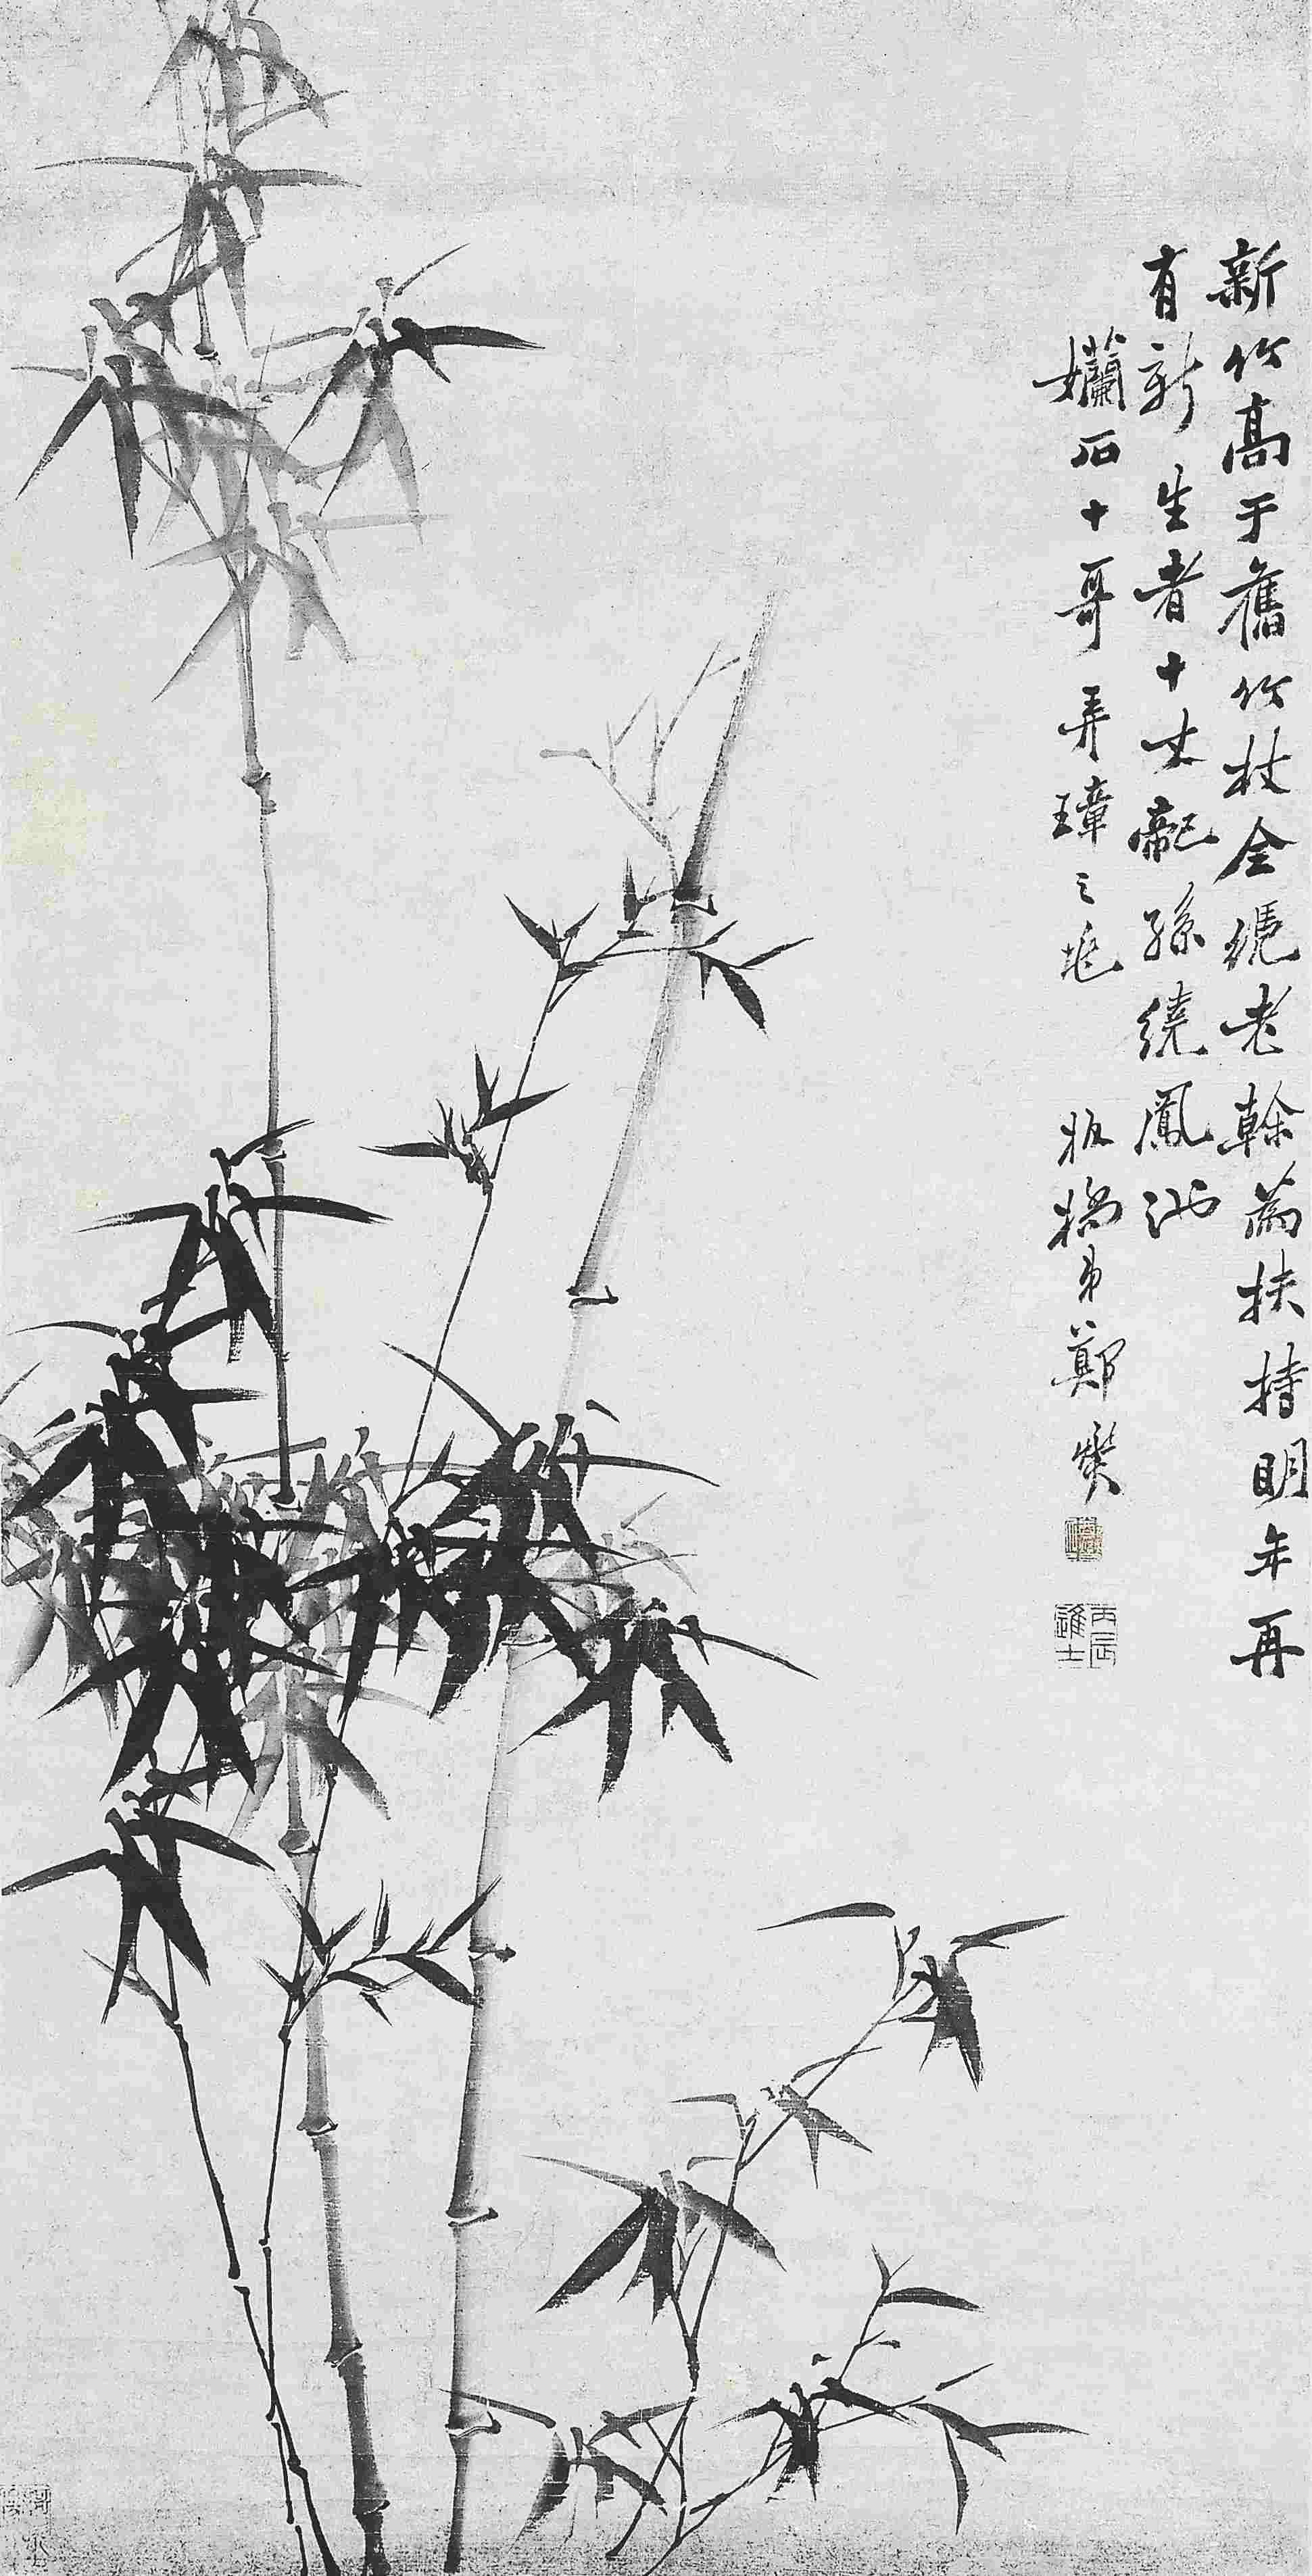 新竹高于舊竹枝全凴老幹為扶持明年再
有新生者十丈龍孫繞鳳池
孏石十哥弄璋之兆 板橋弟鄭燮
丙辰進士